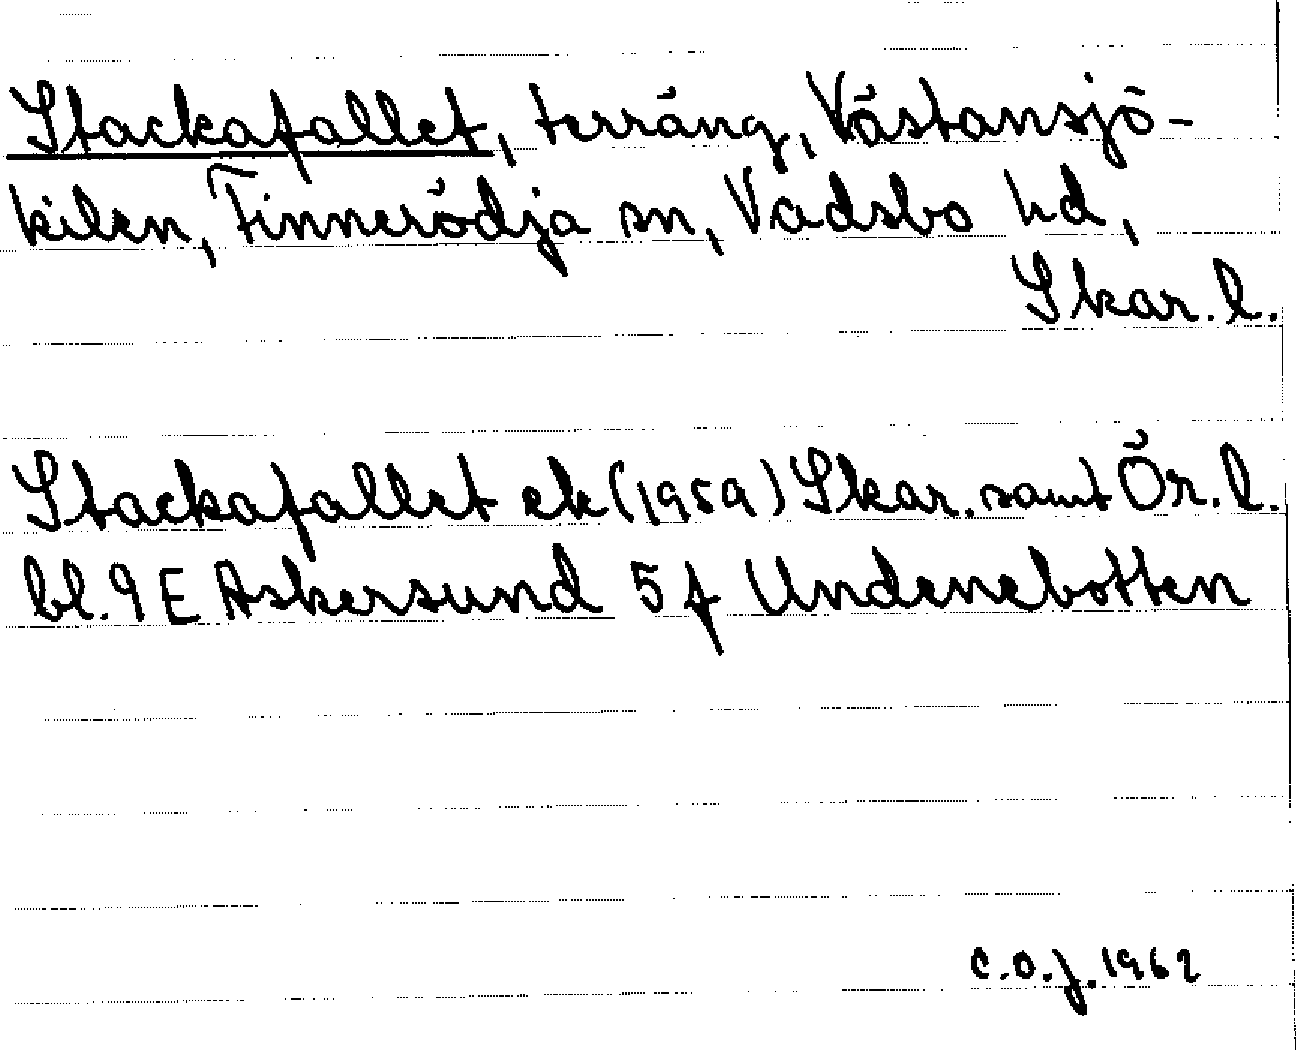 Stackafallet, terräng, Västansjö-
kilen, Finnerödja sn, Vadsbo hd,
Skar. l.
Stackafallet ek (1959) Skar. samt Ör. l.
bl. 9 E Askersund 5 f Undenebotten
C.O.J. 1962